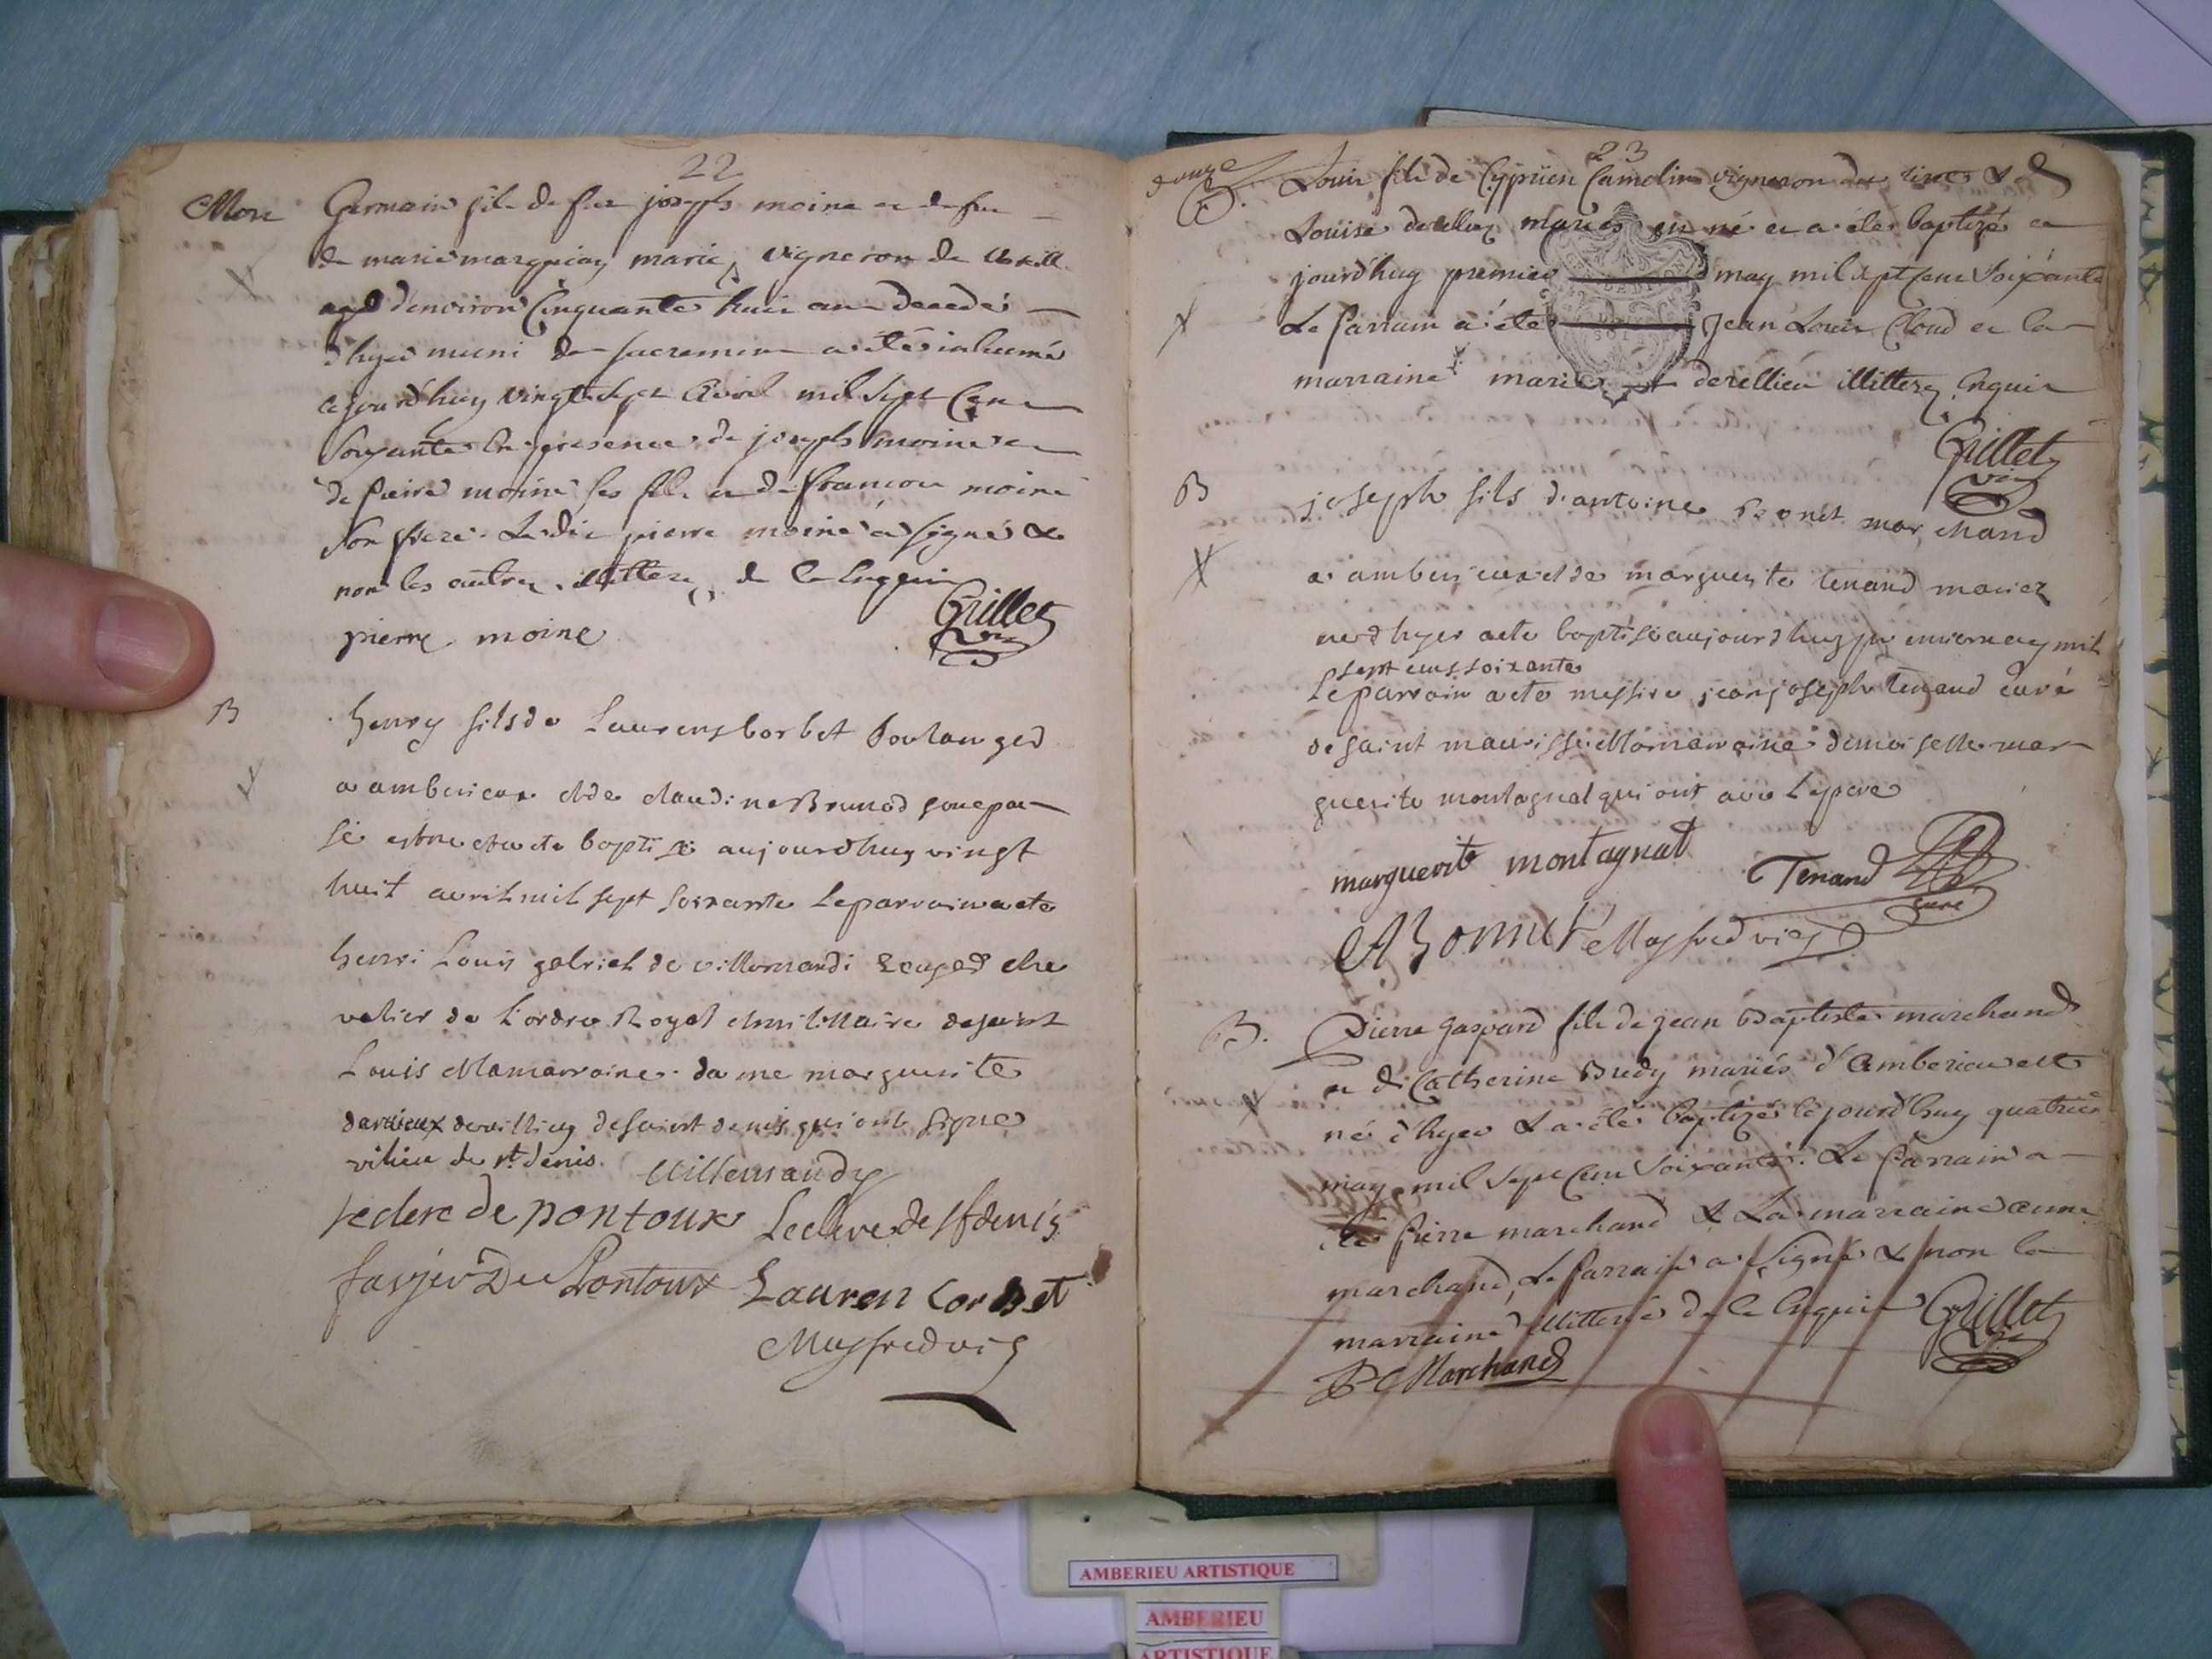 22
Mort Germain fils de feu joseph moine et de feu
de marie marguerite mariés, vigneron de
agé d'environ Cinquante huit ans decedé
d'hyer muni des sacremens a été inhumé
cejourd'huy vingt sept Avril mil sept Cent
soixante en presence de joseph moine et
de pierre moine ses fils et de françois moine
son frere. Ledit pierre moine a signé &
non les autres illitterez de ce Enquis
pierre moine Grillet vic
B henry fils de Laurens corbet Boulanger
a amberieux et de claudine Brunod son epou-
se est ne et a ete baptisé aujourdhuy vingt
huit avril mil sept soixante Le parrain a ete
henri Louis gabriel de villemandi Ecuyer che
valier de L'ordre Royal et militaire de saint
Louis et la marraine dame marguerite
darieux de saint denis qui ont signe
vilieu de st denis. Villemandy
leclerc de pontoux Leclerc de st denis
De Pontoux Lauren corbet
Mayfred vic
23
douze
B. Louis fils de Cyprien Camelin vigneron de & de
Louise derelliez mariés est né et a été baptizé ce
jourd'huy premier may mil sept cent soixante
Le parrain a été Jean Louis Cloud et la
marraine marie derellieu illitterez Enquis
Grillet
vic
B joseph fils d'antoine Bonet marchand
a amberieux et de marguerite tenand mariez
ne d hyer a ete baptisé aujourdhuy may mil
sept cens soixante
Le parrain a ete messire jean joseph tenand curé
de saint maurisse et la marraine demoiselle mar-
guerite montagnat qui ont avec Lepere
marguerite montagnat Tenand
curé
A Bonnet Mayfred vic
B. Pierre gaspard fils de jean Baptiste marchand
et de Catherine Bredy mariés d'Amberieu est
né d'hyer & a été baptizé cejourd'huy quatrie
may mil sept cent soixante. Le parrain a
été pierre marchand & La marraine anne
marchand, Le parrain a signé & non la
marraine illitterée de ce Enquise Grillet
vic
P Marchand
AMBERIEU ARTISTIQUE
AMBERIEU
ARTISTIQUE